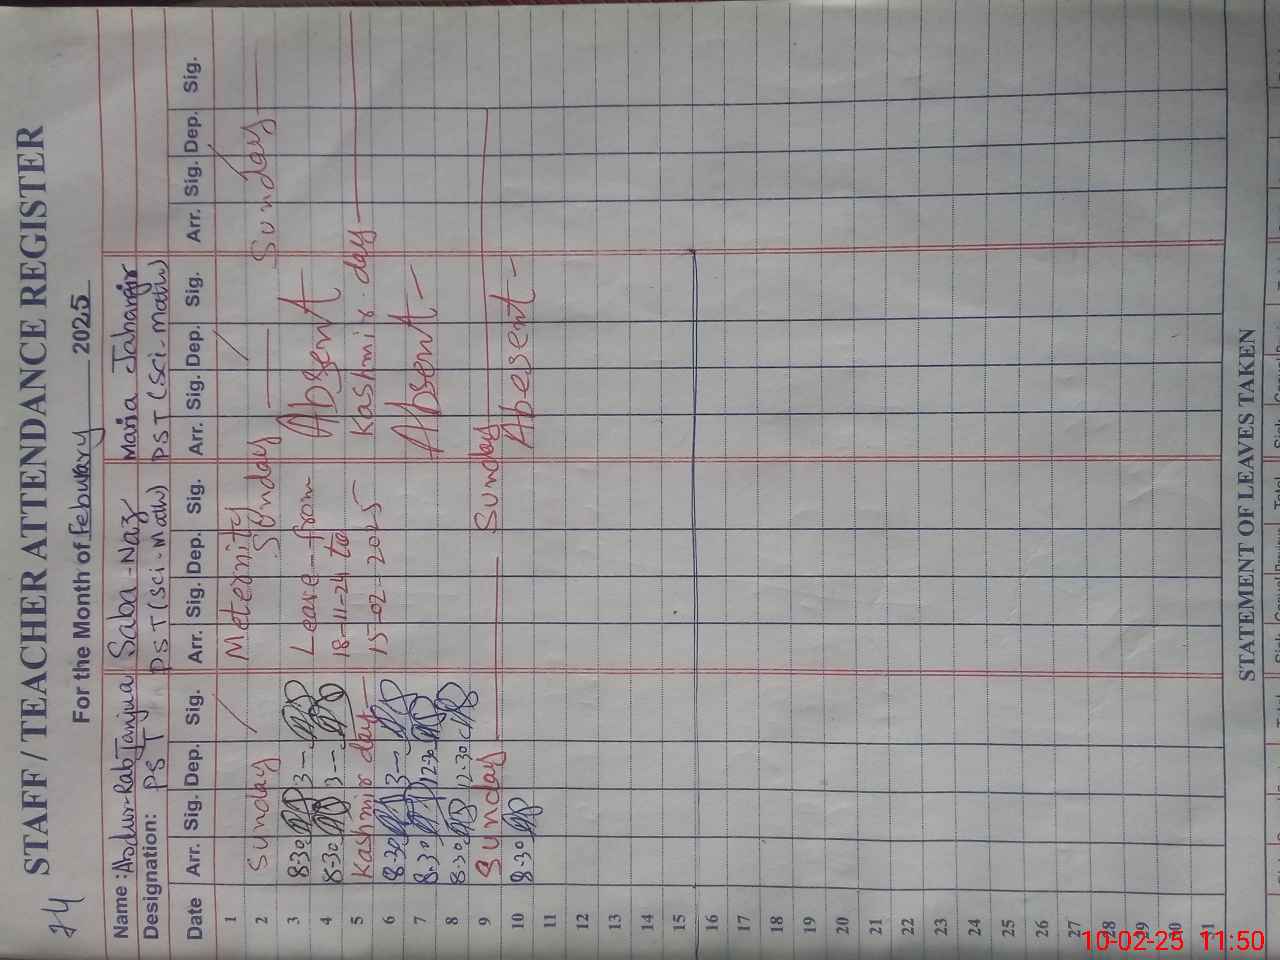 74
STAFF / TEACHER ATTENDANCE REGISTER
For the Month of Febuwary 2025
Name : Abdur-Rab Janjua Saba-Naz Maria Jahangir
Designation: PST PST (sci-math) PST (sci-math)
Date Arr. Sig. Dep. Sig. Arr. Sig. Dep. Sig. Arr. Sig. Dep. Sig. Arr. Sig. Dep. Sig.
1 Meternity
2 Sunday Sunday Sunday
3 8-30 3 Leave-from Absent
4 8-30 3 18-11-24 to
5 Kashmir day 15-02-2025 Kashmir day
6 8-30 3
7 8-30 12-30 Absent
8 8-30 12-30
9 Sunday Sunday
10 8-30 Abesent
11
12
13
14
15
16
17
18
19
20
21
22
23
24
25
26
27
28
29
30
31
STATEMENT OF LEAVES TAKEN
10-02-25 11:50